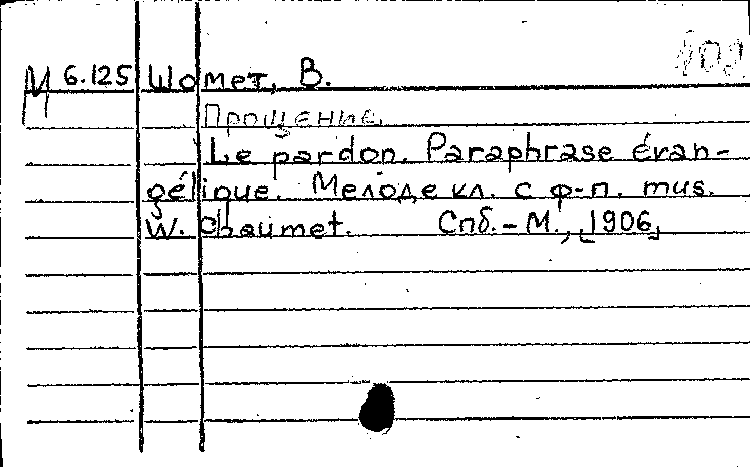 М 6.125 Шомет, В.
Прощение.
Le pardon. Paraphrase évan-
gélique. Мелодекл. с ф-п. mus.
W. Chaumet. Спб.-М., [1906]